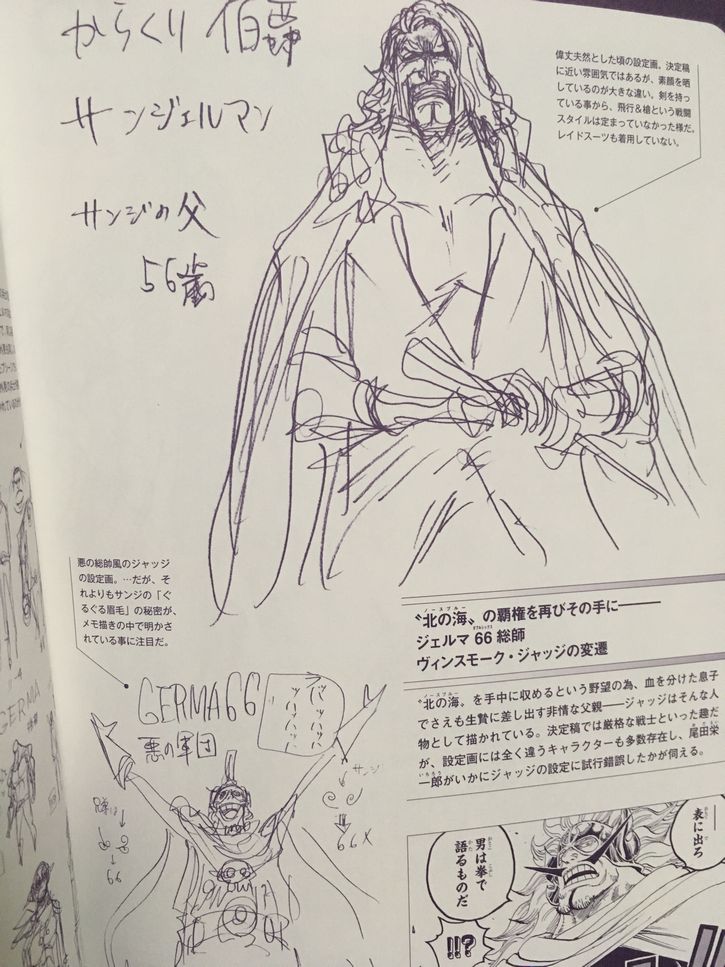 からくり 伯爵
サンジェルマン
サンジの父
56歳
偉丈夫然とした頃の設定画。決定稿
に近い雰囲気ではあるが、素顔を晒
しているのが大きな違い。剣を持っ
ている事から、飛行&槍という戦闘
スタイルは定まっていなかった様だ。
レイドスーツも着用していない。
悪の総帥風のジャッジ
の設定画。…だが、そ
れよりもサンジの「ぐ
るぐる眉毛」の秘密が、
メモ描きの中で明かさ
れている事に注目だ。
GERMA66
悪の軍団
サンジ
66
66
ノースブルー
〝北の海〟の覇権を再びその手に───
ダブルシックス
ジェルマ 66 総帥
ヴィンスモーク・ジャッジの変遷
ノースブルー
〝北の海〟を手中に収めるという野望の為、血を分けた息子
でさえも生贄に差し出す非情な父親──ジャッジはそんな人
物として描かれている。決定稿では厳格な戦士といった趣だ
が、設定画には全く違うキャラクターも多数存在し、尾田栄
一郎がいかにジャッジの設定に試行錯誤したかが伺える。
表に出ろ
男は拳で
語るものだ
!!?